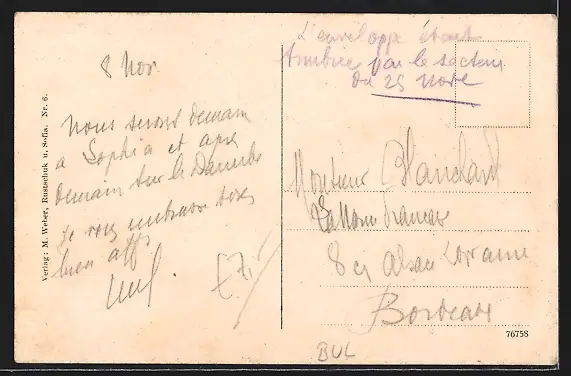 8 Nov
Nous serons demain
a Sophia et apres
demain sur le Danube
je vous embrasse tous
bien aff
L'enveloppe étant
timbrée par le secteur
du 25 Nove
Monsieur Blanchard
La Mon Francaise
8 Alsace Lorraine
Bordeaux
£7,
BUL
76758
Verlag: M. Weber, Rustschuk u. Sofia. Nr. 6.